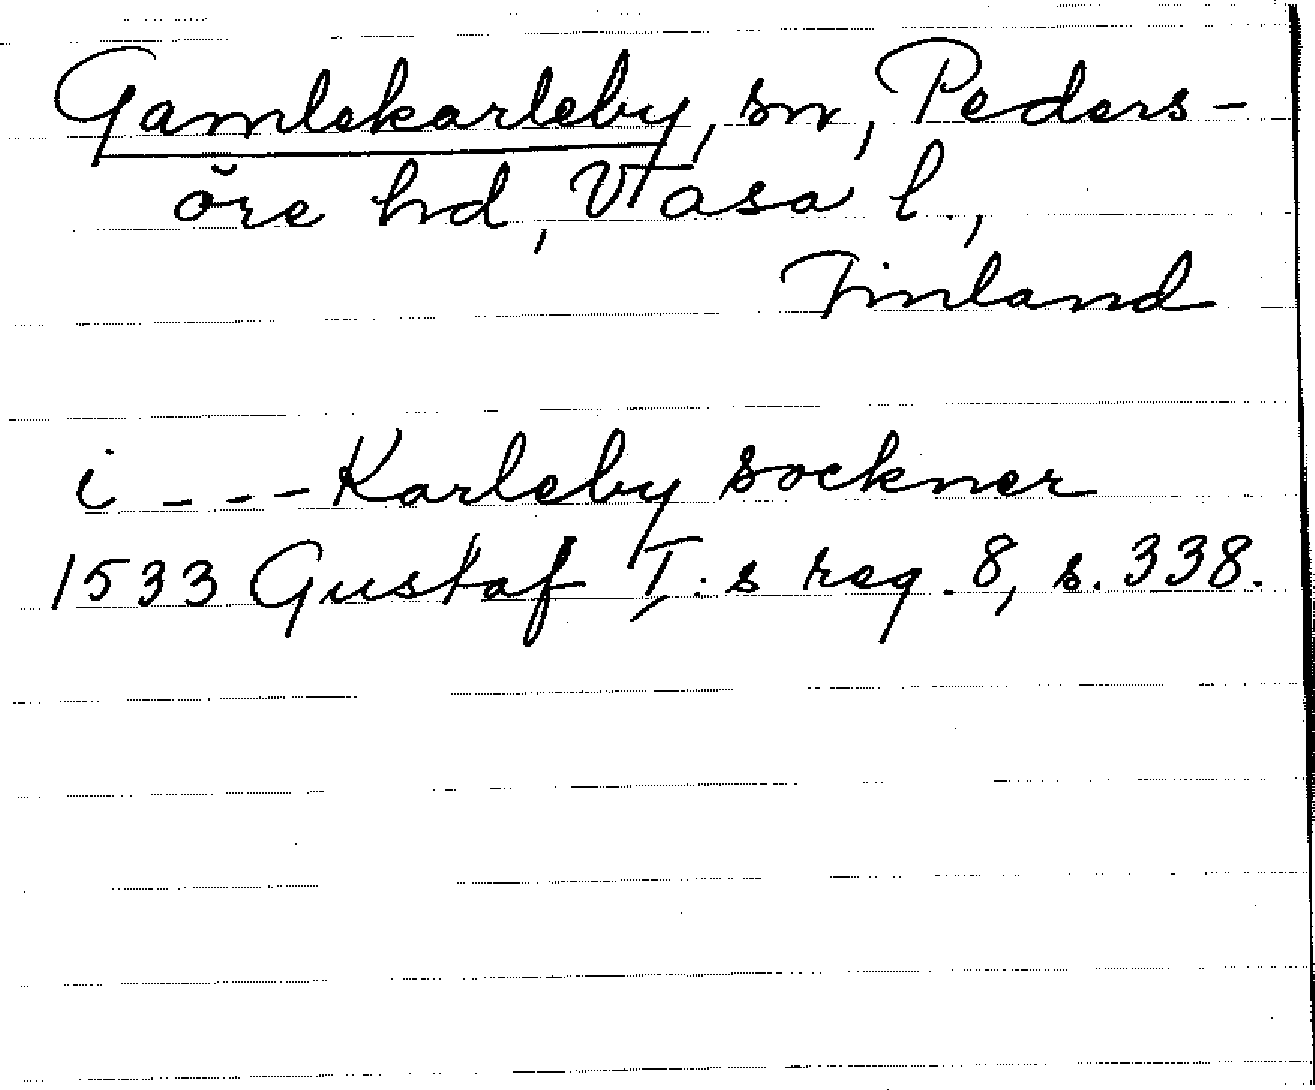 Gamlekarleby, sn, Peders-
öre hd, Vasa l.,
Finland
i --- Karleby sockner
1533 Gustaf I:s reg. 8, s. 338.